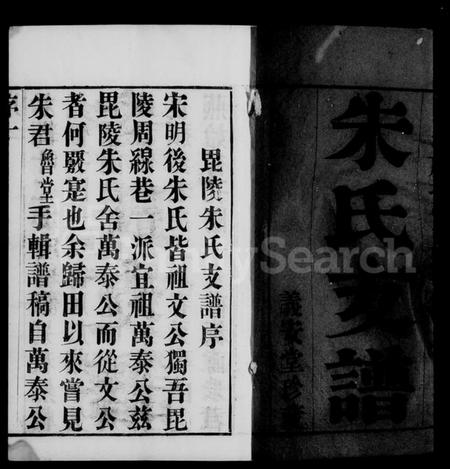 朱氏支譜
義安堂珍藏
毘陵朱氏支譜序
宋明後朱氏皆祖文公獨吾毘
陵周線巷一派宜祖萬泰公茲
毘陵朱氏舍萬泰公而從文公
者何覈寔也余歸田以來嘗見
朱君魯堂手輯譜稿自萬泰公
序一
FamilySearch